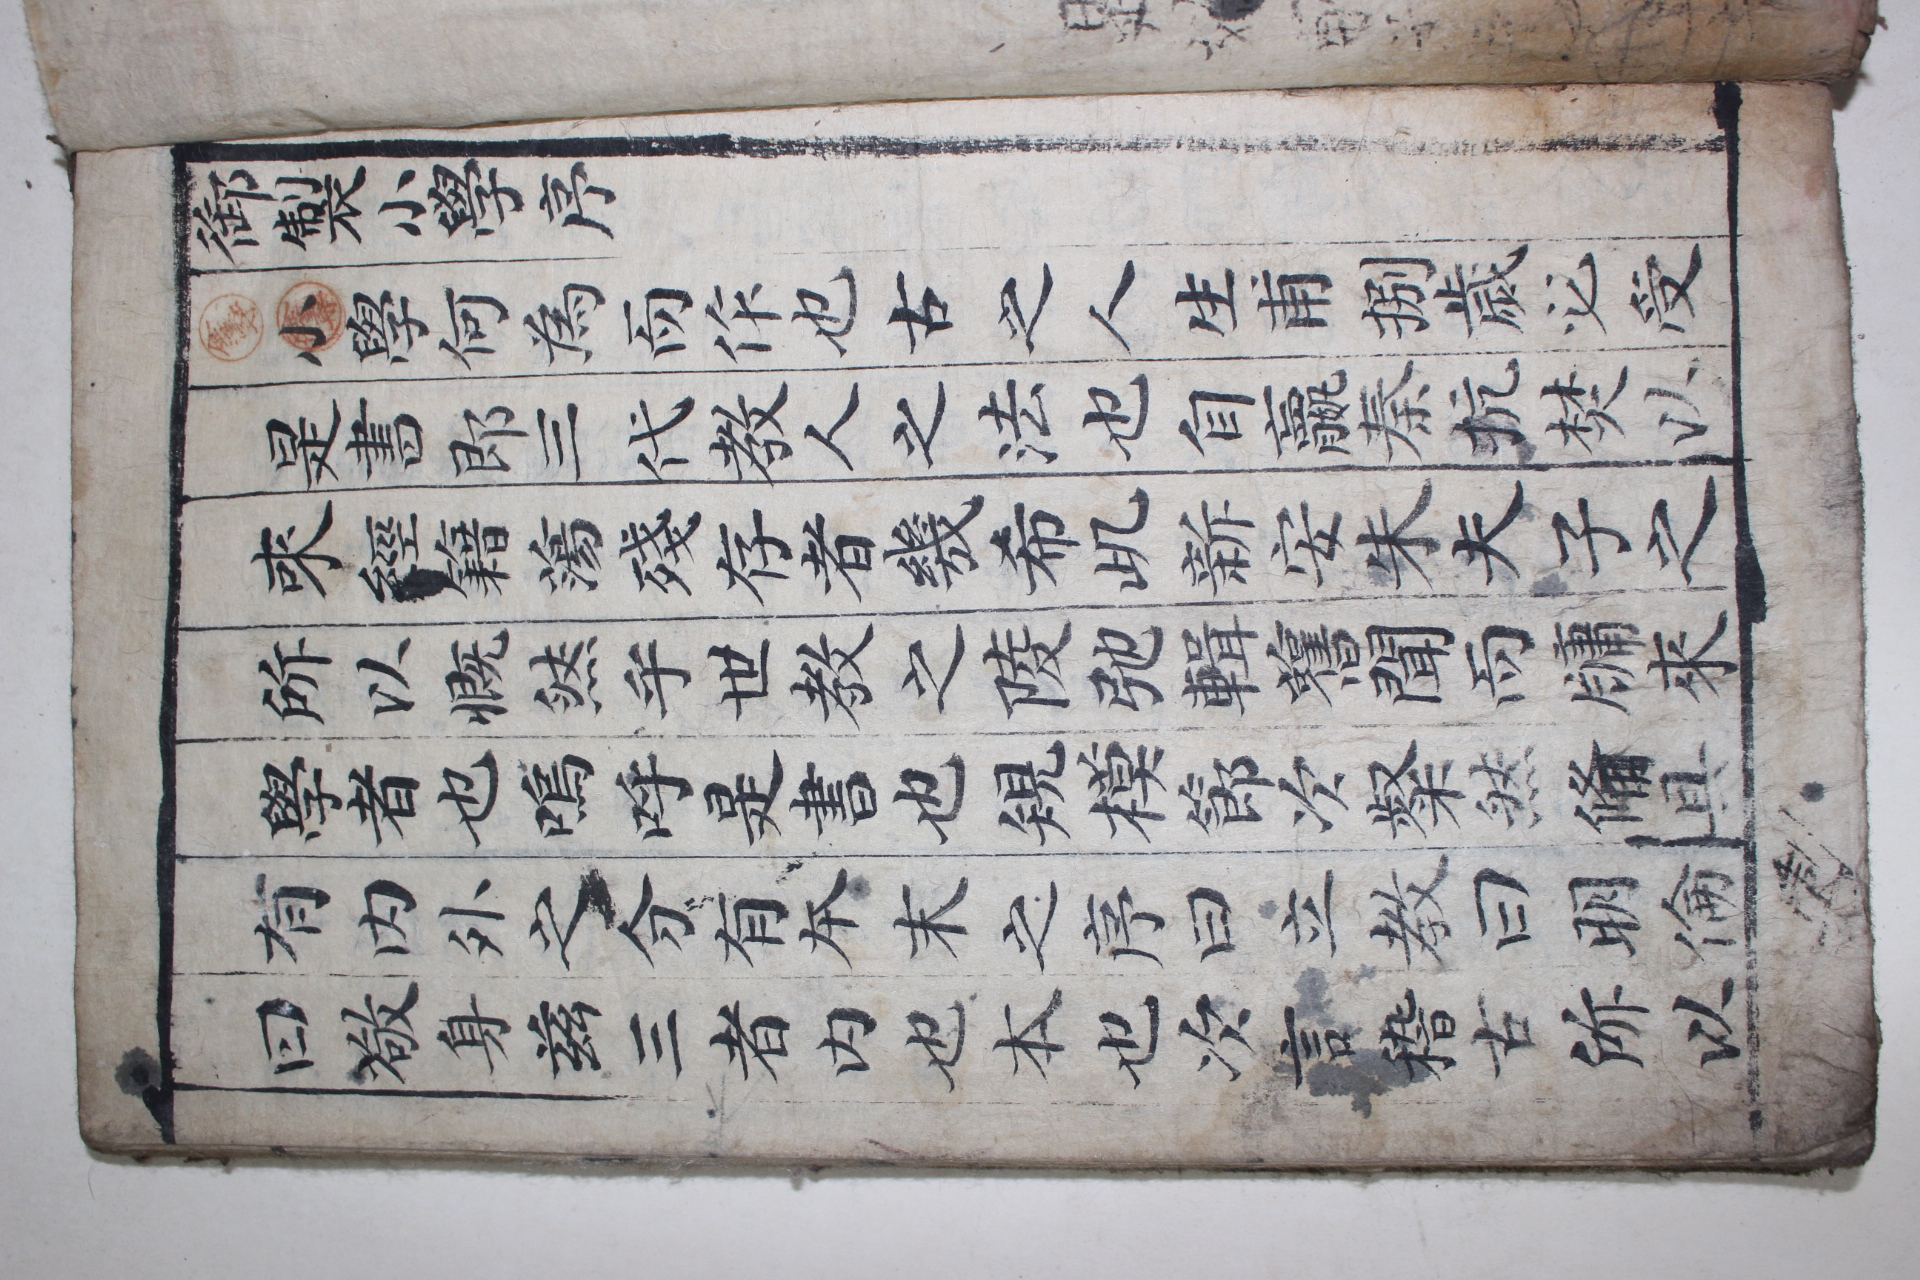 御製小學序
小學何爲而作也古之人生甫捌歲必受
是書卽三代敎人之法也自嬴秦坑焚以
來經籍蕩殘存者幾希此新安朱夫子之
所以慨然乎世敎之陵弛輯舊聞而牖來
學者也嗚呼是書也規模節次粲然備具
有內外之分有本末之序曰立敎曰明倫
曰敬身玆三者內也本也次言稽古所以